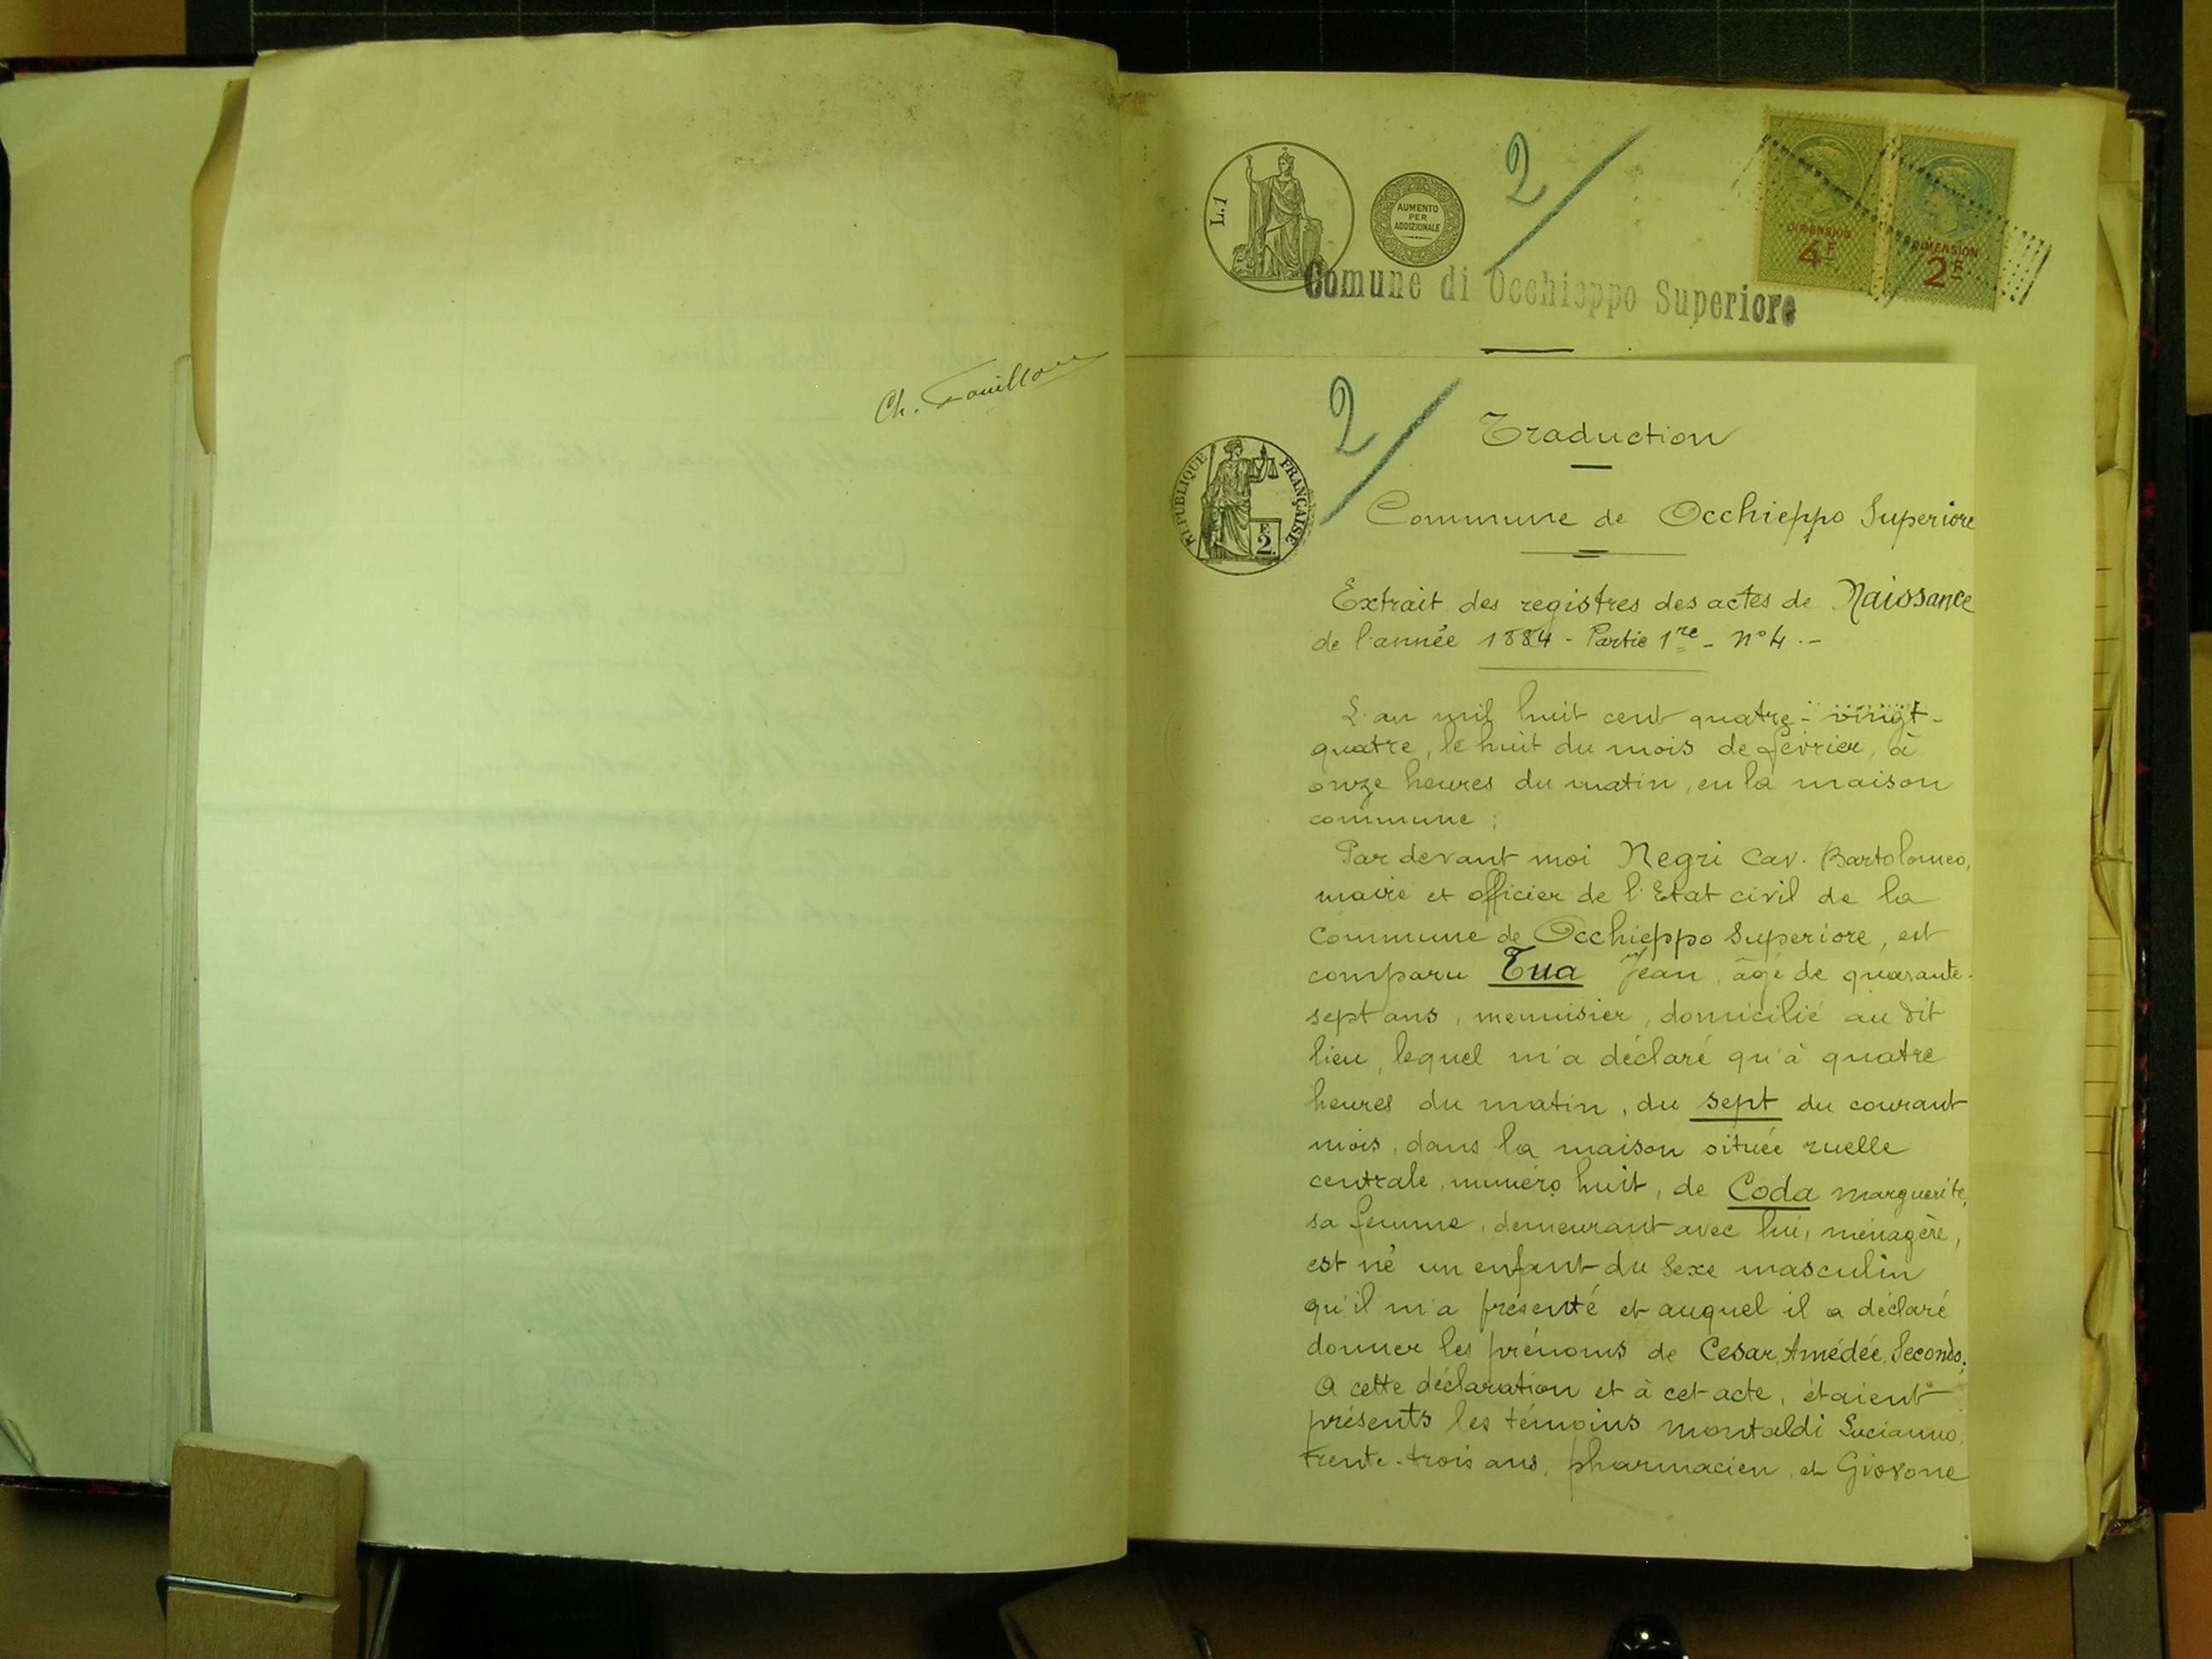 Ch.
L.1
AUMENTO
PER
ADDIZIONALE
2
DIMENSION
4F
DIMENSION
2F
Comune di Occhieppo Superiore
2
RÉPUBLIQUE FRANÇAISE
F.
2.
Traduction
Commune de Occhieppo Superiore
Extrait des registres des actes de Naissance
de l'année 1884 - Partie 1re - N° 4 . -
L'an mil huit cent quatre - vingt -
quatre, le huit du mois de février, à
onze heures du matin, en la maison
commune ;
Par devant moi Negri Cav. Bartolomeo,
maire et officier de l'Etat civil de la
Commune de Occhieppo Superiore, est
comparu Tua Jean, âgé de quarante-
sept ans, menuisier, domicilié au dit
lieu, lequel m'a déclaré qu'à quatre
heures du matin, du sept du courant
mois, dans la maison située ruelle
centrale, numéro huit, de Coda Marguerite,
sa femme, demeurant avec lui, ménagère,
est né un enfant du sexe masculin
qu'il m'a présenté et auquel il a déclaré
donner les prénoms de Cesar, Amédée, Secondo.
A cette déclaration et à cet acte, étaient
présents les témoins Montaldi Lucianno,
trente-trois ans, pharmacien, et Giovone